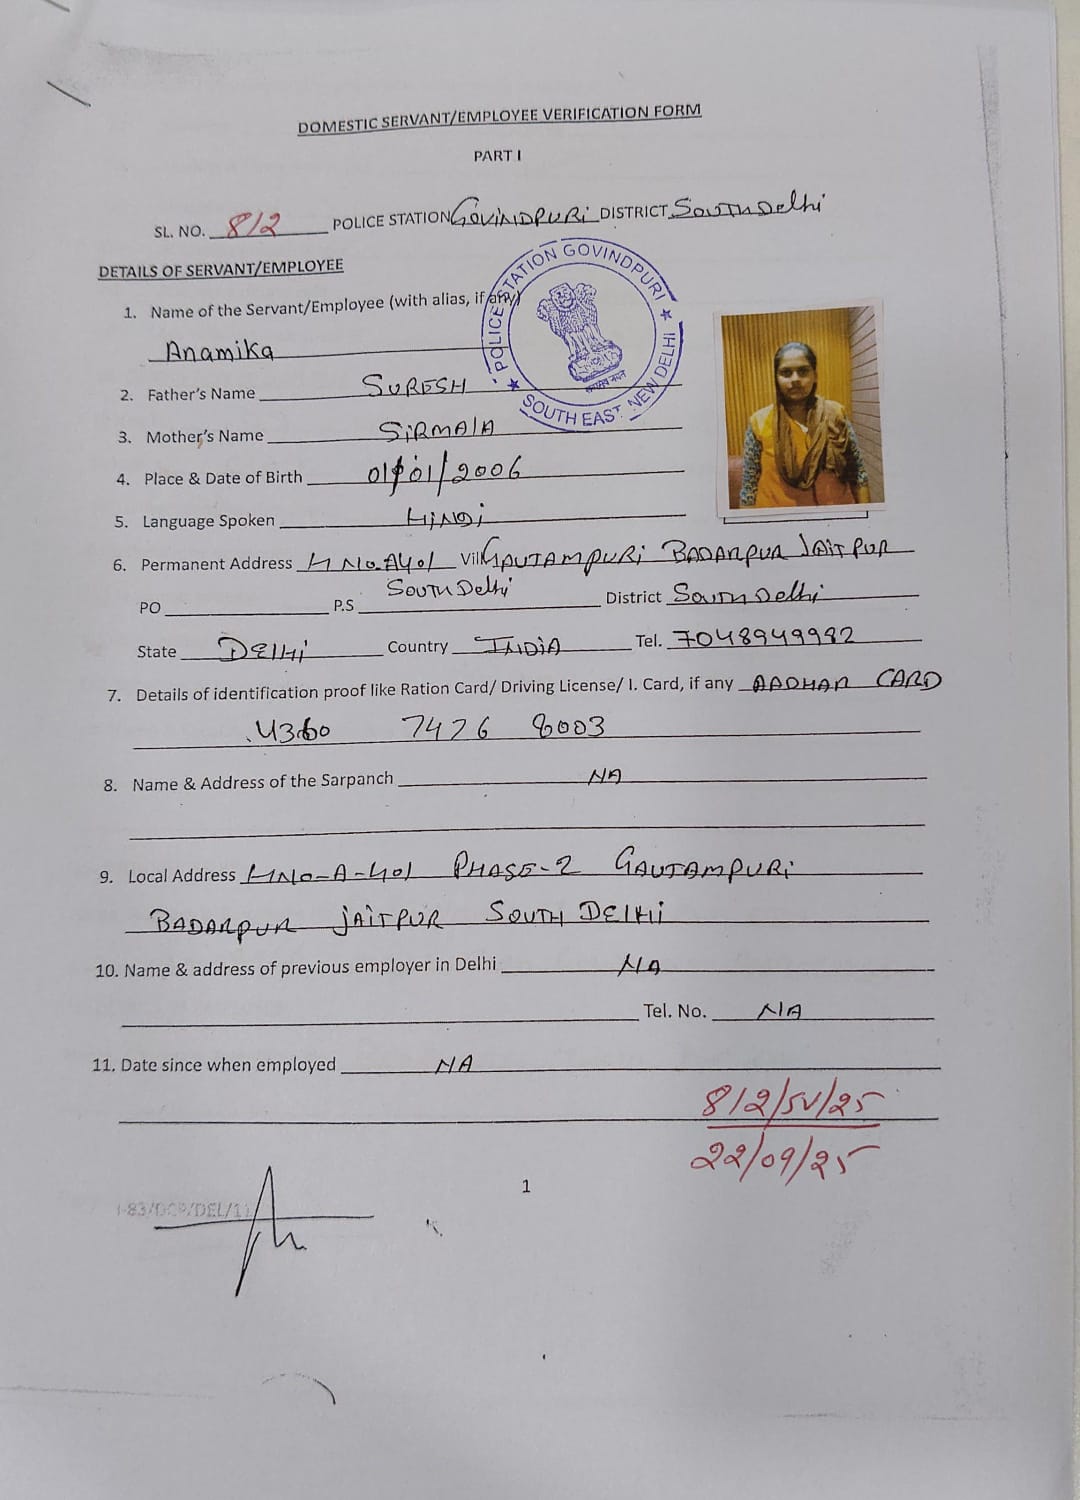 DOMESTIC SERVANT/EMPLOYEE VERIFICATION FORM
PART I
SL. NO. 812 POLICE STATION GOVINDPURi DISTRICT SOUTH Delhi
DETAILS OF SERVANT/EMPLOYEE
POLICE STATION GOVINDPURI
SOUTH EAST. NEW DELHI
1. Name of the Servant/Employee (with alias, if any)
Anamika
2. Father's Name SURESH
3. Mother's Name SiRMAlA
4. Place & Date of Birth 01/01/2006
5. Language Spoken HiNDi
6. Permanent Address H NO. A401 Vill GAUTAMPURi BADARPUR JAiTPUR
SOUTH Delhi
PO P.S District South Delhi
State DElHi Country INDiA Tel. 7048949982
7. Details of identification proof like Ration Card/ Driving License/ I. Card, if any AADHAR CARD
4360 7426 8003
8. Name & Address of the Sarpanch NA
9. Local Address HNO-A-401 PHASE-2 GAUTAMPURi
BADARPUR JAiTPUR SOUTH DElHi
10. Name & address of previous employer in Delhi NA
Tel. No. NA
11. Date since when employed NA
812/SV/25
22/09/25
1
83/DCP/DEL/11